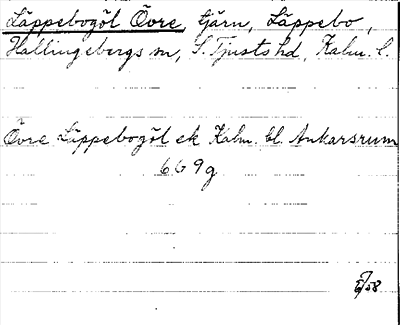 Läppebogöl Övre, tjärn, Läppebo,
Hallingebergs sn, S. Tjusts hd, Kalm. l.
Övre Läppebogöl ek Kalm. bl. Ankarsrum
6 G 9 g